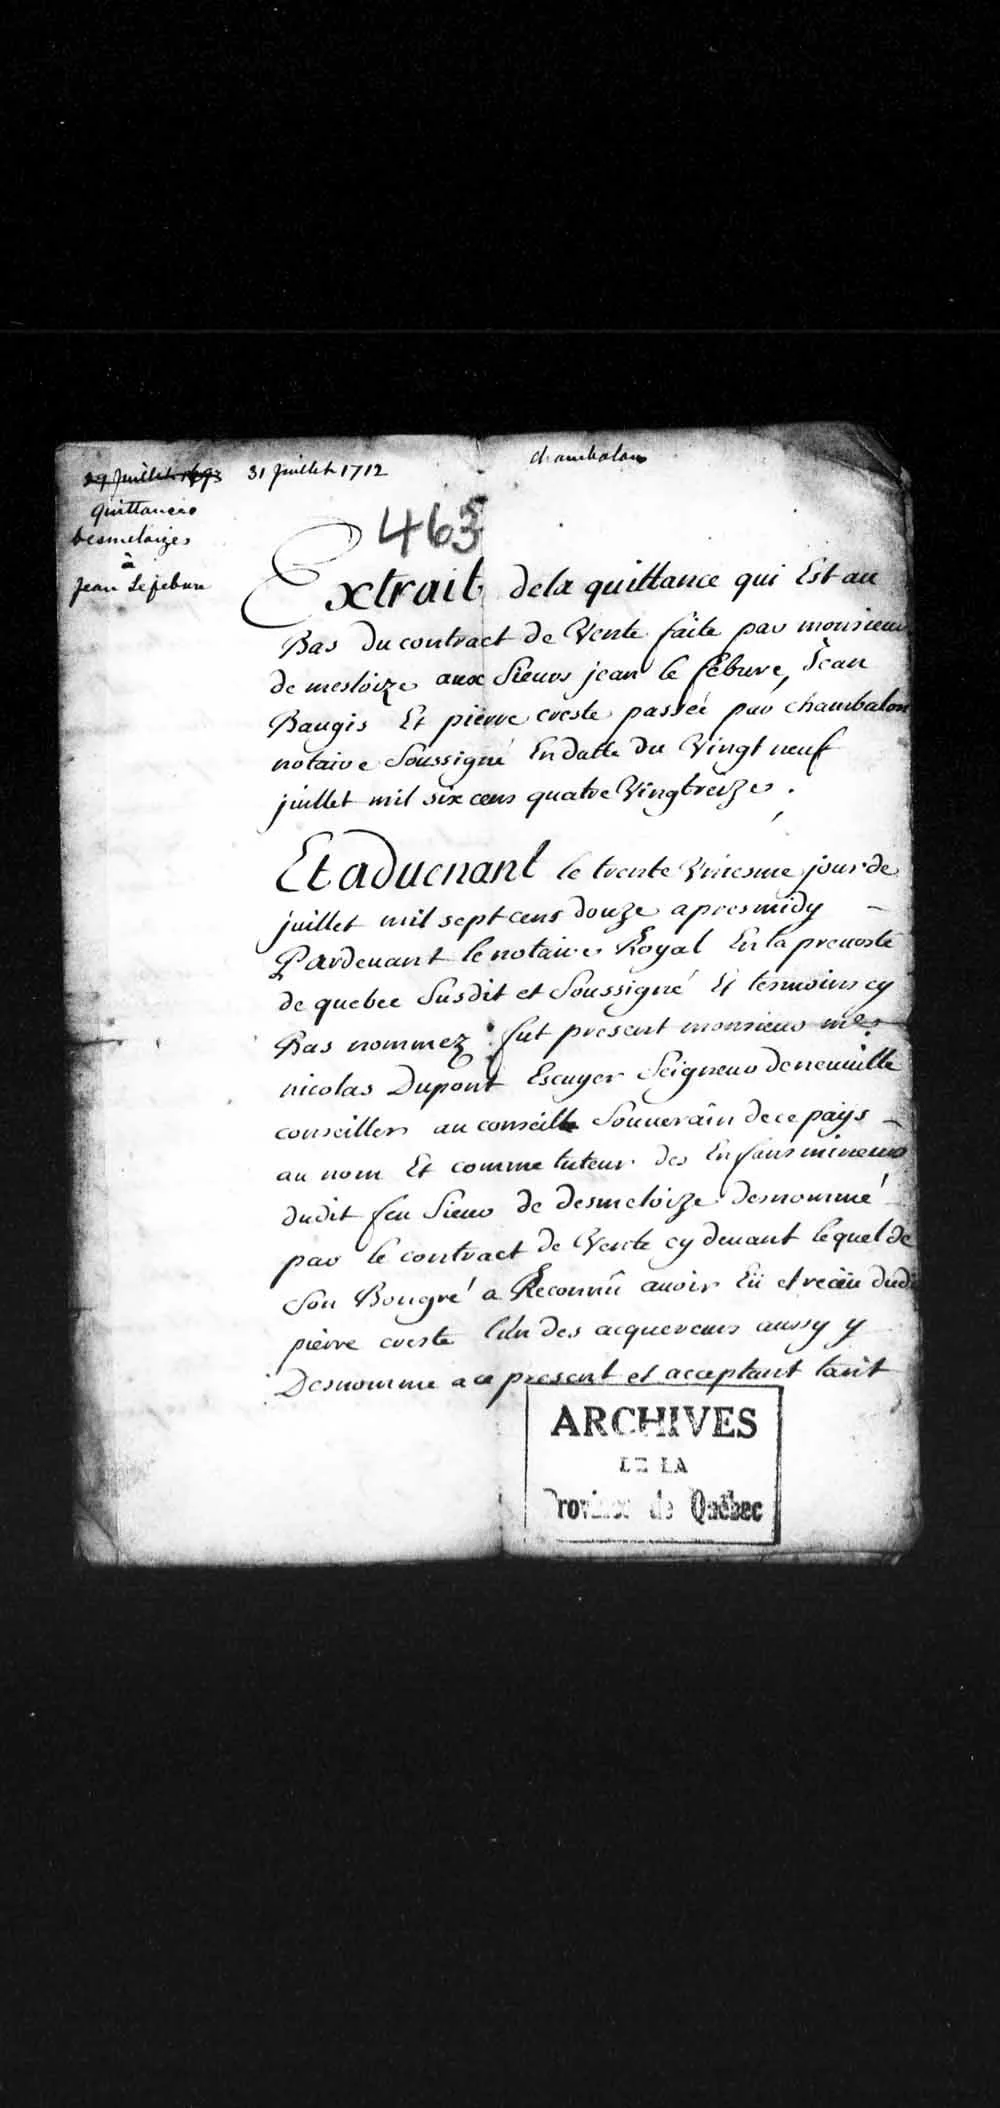 29 Juillet 1693 31 Juillet 1712
chambalon
quittance
desmeloizes
à
Jean Lefebure
463
Extrait dela quittance qui Est au
Bas du contract de Vente faite par monsieur
de mesloize aux Sieurs jean le febure, Jean
Baugis Et pierre creste passée par chambalon
notaire Soussigné En datte du Vingt neuf
juillet mil six cens quatre Vingtreize.
Et aduenant le trente Vniesme jour de
juillet mil sept cens douze apresmidy
Pardeuant le notaire Royal En la preuosté
de quebec Susdit et Soussigné Et tesmoins cy
Bas nommez fut present monsieur me
nicolas Dupont Escuyer Seigneur deneuuille
conseiller au conseille Souuerain de ce pays
au nom Et comme tuteur des Enfans mineurs
dudit feu Sieur de desmeloize desnommé
par le contract de Vente cy deuant lequel de
Son Bongré a Reconnû auoir Eü et reçeu dudi
pierre creste l'un des acquereurs aussy y
Desnomme a ce present et acceptant tant
ARCHIVES
DE LA
Province de Québec